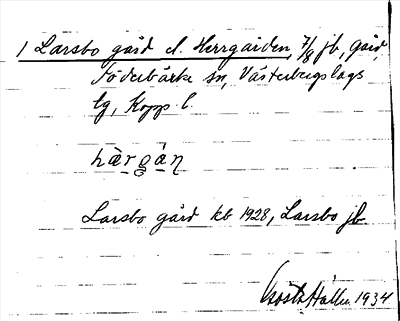 1 Larsbo gård el. Herrgården, 7/8 jb, gård,
Söderbärke sn, Västerbergslags
lg, Kopp l.
hàrgán
Larsbo gård kb 1928, Larsbo jb
Gösta Hallén 1934